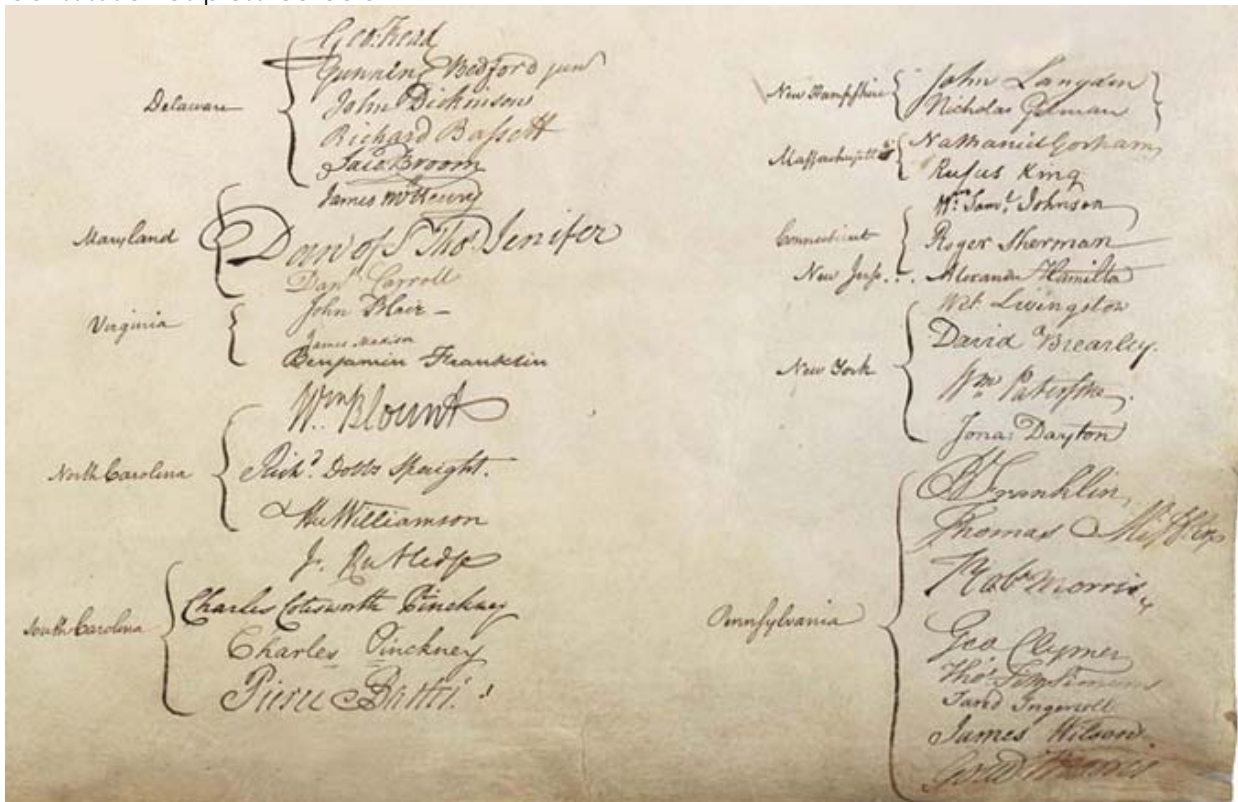 Delaware
Geo: Read
Gunning Bedford jun
John Dickinson
Richard Bassett
Jaco Broom
Maryland
James McHenry
Dan of S Tho. Jenifer
Danl Carroll
Virginia
John Blair –
James Madison
Benjamin Franklin
North Carolina
Wm Blount
Richd. Dobbs Spaight.
Hu Williamson
South Carolina
J. Rutledge
Charles Cotesworth Pinckney
Charles Pinckney
Pierce
New Hampshire
John Langdon
Nicholas Gilman
Massachusetts
Nathaniel Gorham
Rufus King
Connecticut
Wm. Saml. Johnson
Roger Sherman
New Jerse...
Alexander Hamilto
Wil. Livingston
New York
David Brearley.
Wm
Jona: Dayton
Pennsylvania
B Franklin
Thomas Mifflin
Robt Morris
Geo Clymer
Thos.
Jared Ingersoll
James Wilson.